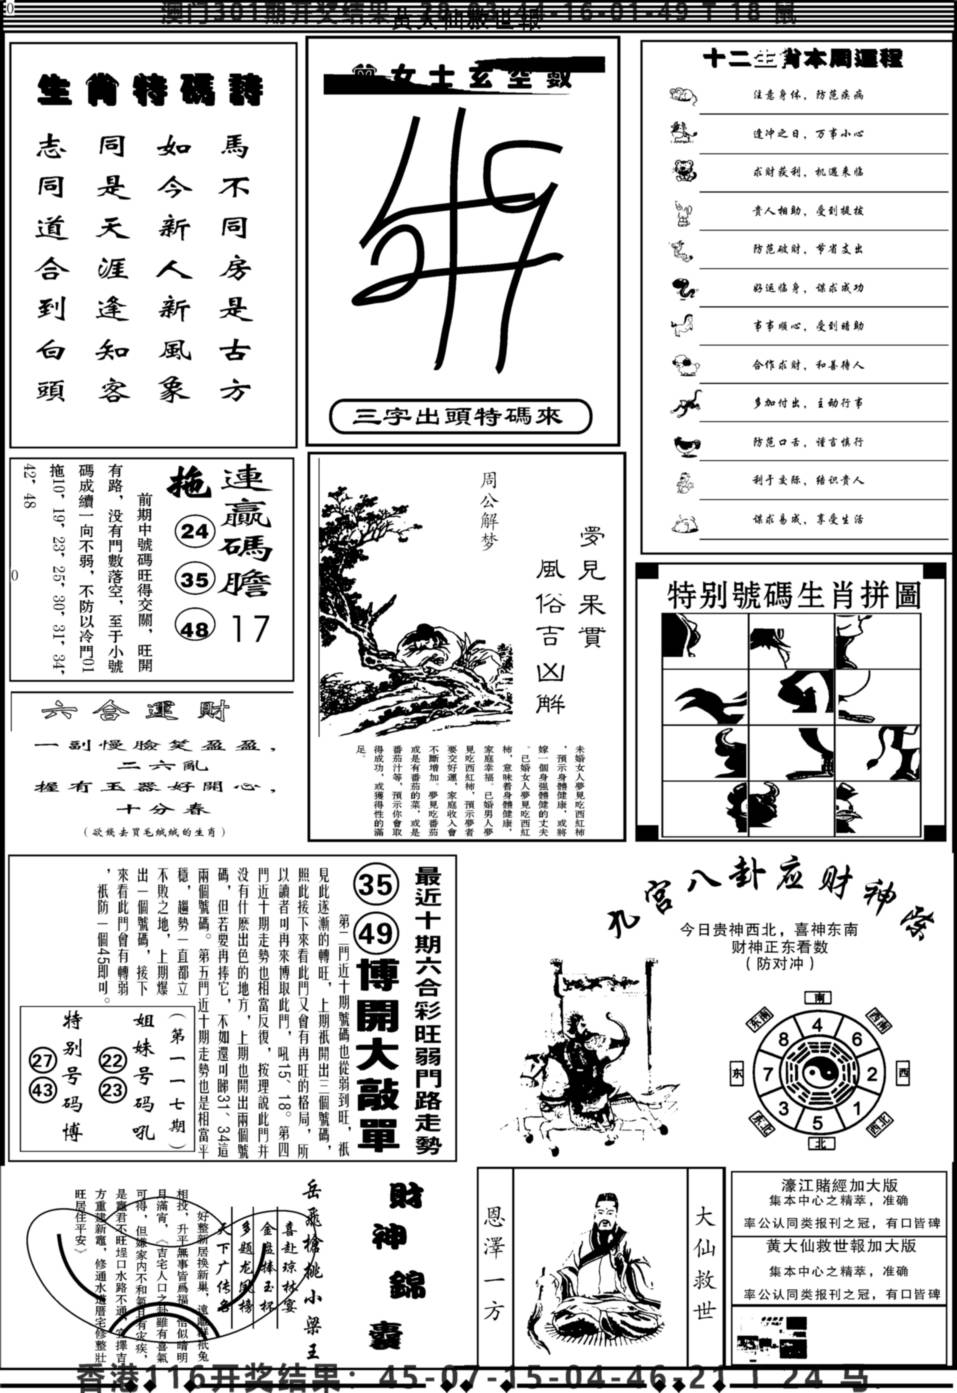 生肖特碼詩
馬不同房是古方
如今新人新風象
同是天涯逢知客
志同道合到白頭
曾女士玄空數
三字出頭特碼來
十二生肖本周運程
注意身体，防范疾病
逢冲之日，万事小心
求财获利，机遇来临
贵人相助，受到提拔
防范破财，节省支出
好运临身，谋求成功
事事顺心，受到暗助
合作求财，和善待人
多加付出，主动行事
防范口舌，谨言慎行
利于交际，结识贵人
谋求易成，享受生活
連贏碼膽 17
拖 24 35 48
前期中號碼旺得交關，旺開
有路，没有門數落空，至于小號
碼成續一向不弱，不防以冷門01
拖10，19，23，25，30，31，34，
42，48
六合運財
一副慢臉笑盈盈，
二六亂
握有玉器好開心，
十分春
（欲錢去買毛絨絨的生肖）
周公解梦
夢見果實
風俗吉凶解
未婚女人夢見吃西紅柿
，預示身體健康，或將
嫁一個身强體健的丈夫
。已婚女人夢見吃西紅
柿，意味着身體健康，
家庭幸福。已婚男人夢
見吃西紅柿，預示夢者
要交好運，家庭收入會
不斷增加。夢見吃番茄
或是有番茄的菜，或是
番茄汁等，預示你會取
得成功，或獲得性的滿
足。
特别號碼生肖拼圖
最近十期六合彩旺弱門路走勢
35 49 博開大敲單
第二門近十期號碼也從弱到旺，祇
見此逐漸的轉旺，上期祇開出三個號碼，
照此接下來看此門又會有再旺的格局，所
以讀者可再來博取此門，吼15、18。第四
門近十期走勢也相當反復，按理說此門并
没有什麽出色的地方，上期也開出兩個號
碼，但若要再捧它，不如還可睇31、34這
兩個號碼。第五門近十期走勢也是相當平
穩，趨勢一直都立
不敗之地，上期爆
出一個號碼，接下
來看此門會有轉弱
，祇防一個45即可。
（第一一七期）
姐妹号碼吼 22 23
特别号码博 27 43
九宫八卦应财神际
今日贵神西北，喜神东南
财神正东看数
（防对冲）
南
西南
西
西北
北
东北
东
东南
4
6
2
1
5
3
7
8
財神錦囊
岳飛槍挑小梁王
喜赴琼林宴
金盛捧玉杯
多题龙凤榜
天下广传名
好整新居換新巢，遠離群祇兔
相投，升平無事皆爲福，恰似晴明
月滿宵，《吉宅人口之卦雖有喜氣
可得，但嫌家内不和氣且有灾疾，
是竈君不旺埕口水路不通，宜擇吉
方重建新竈，修通水道厝宅修整壯
旺居住平安》
恩澤一方
大仙救世
濠江賭經加大版
集本中心之精萃，准确
率公认同类报刊之冠，有口皆碑
黄大仙救世報加大版
集本中心之精萃，准确
率公认同类报刊之冠，有口皆碑
香港116开奖结果：45-07-15-04-46-21 T 24 马